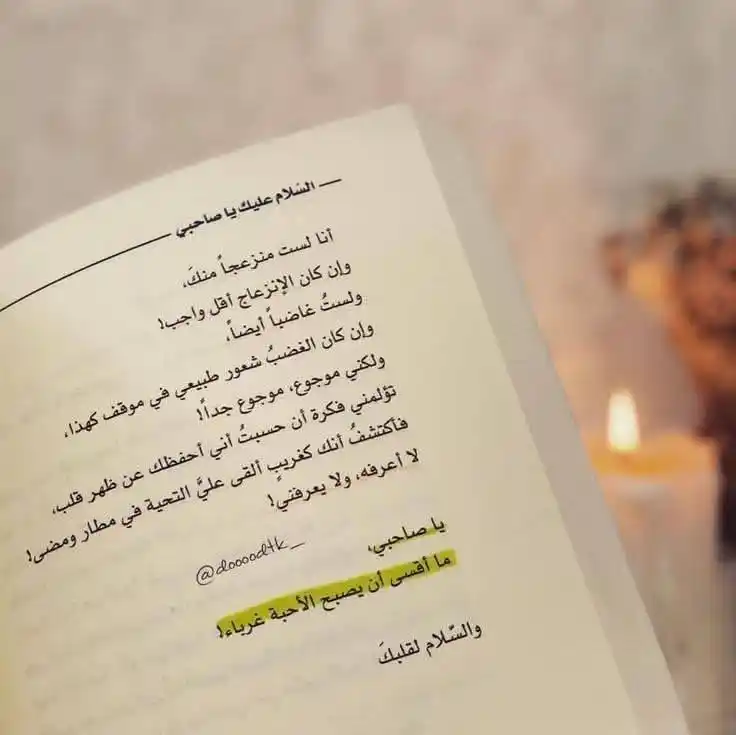 السّلام عليك يا صاحبي
أنا لست منزعجاً منكَ،
وإن كان الإنزعاج أقل واجب!
ولستُ غاضباً أيضاً،
وإن كان الغضبُ شعور طبيعي في موقف كهذا،
ولكني موجوع، موجوع جداً!
تؤلمني فكرة أن حسبتُ أني أحفظك عن ظهر قلب،
فأكتشفُ أنك كغريبٍ ألقى عليَّ التحية في مطار ومضى!
لا أعرفه، ولا يعرفني!
@doooodtk_
يا صاحبي،
ما أقسى أن يصبح الأحبة غرباء!
والسّلام لقلبكَ